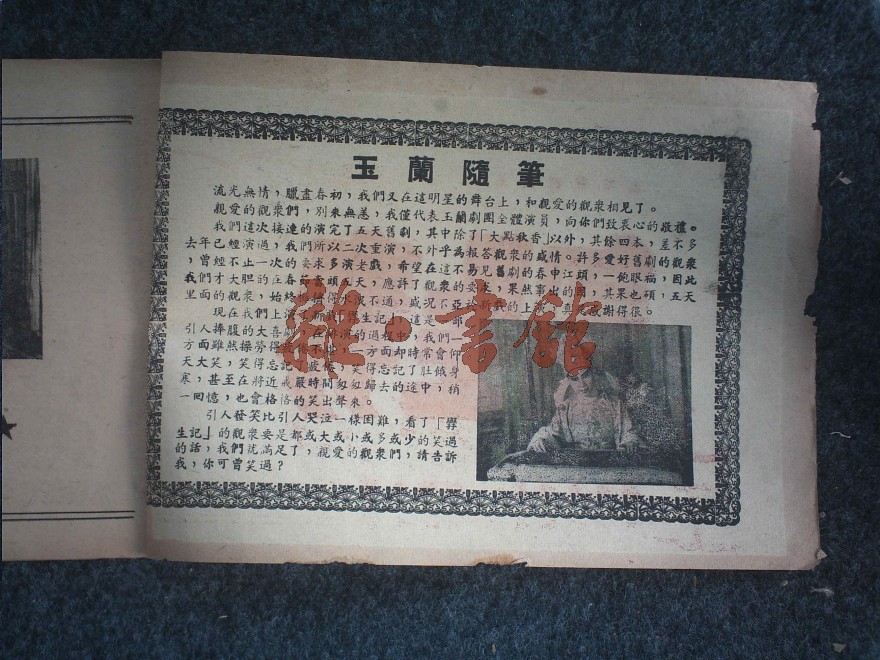 玉蘭隨筆
流光無情，臘盡春初，我們又在這明星的舞台上，和親愛的觀衆相見了。
親愛的觀衆們，別來無恙，我僅代表玉蘭劇團全體演員，向你們致衷心的敬禮。
我們這次接連的演完了五天舊劇，其中除了「大點秋香」以外，其餘四本，差不多
去年已經演過，我們所以二次重演，不外乎為報答觀衆的盛情。許多愛好舊劇的觀衆
，曾經不止一次的要求多演老戲，希望在這不易見舊劇的春申江頭，一飽眼福，因此
我們才大胆的在春節當頭五天，應許了觀衆的要求，果然事出的因，其果也碩，五天
里面的觀衆，始終擁擠得水洩不通，盛況不亞於新戲的上演，真是感謝得很。
現在我們上演 生記」 這是一部
引人捧腹的大喜劇 演的過程中，我們一
方面雖然操勞得 一方面却時常會仰
天大笑，笑得忘記 疲倦，笑得忘記了肚餓身
寒，甚至在將近戒嚴時間匆匆歸去的途中，稍
一回憶，也會格格的笑出聲來。
引人發笑比引人哭泣一樣困難，看了「孿
生記」的觀衆要是都或大或小或多或少的笑過
的話，我們就滿足了，親愛的觀衆們，請告訴
我，你可曾笑過？
雜·書館